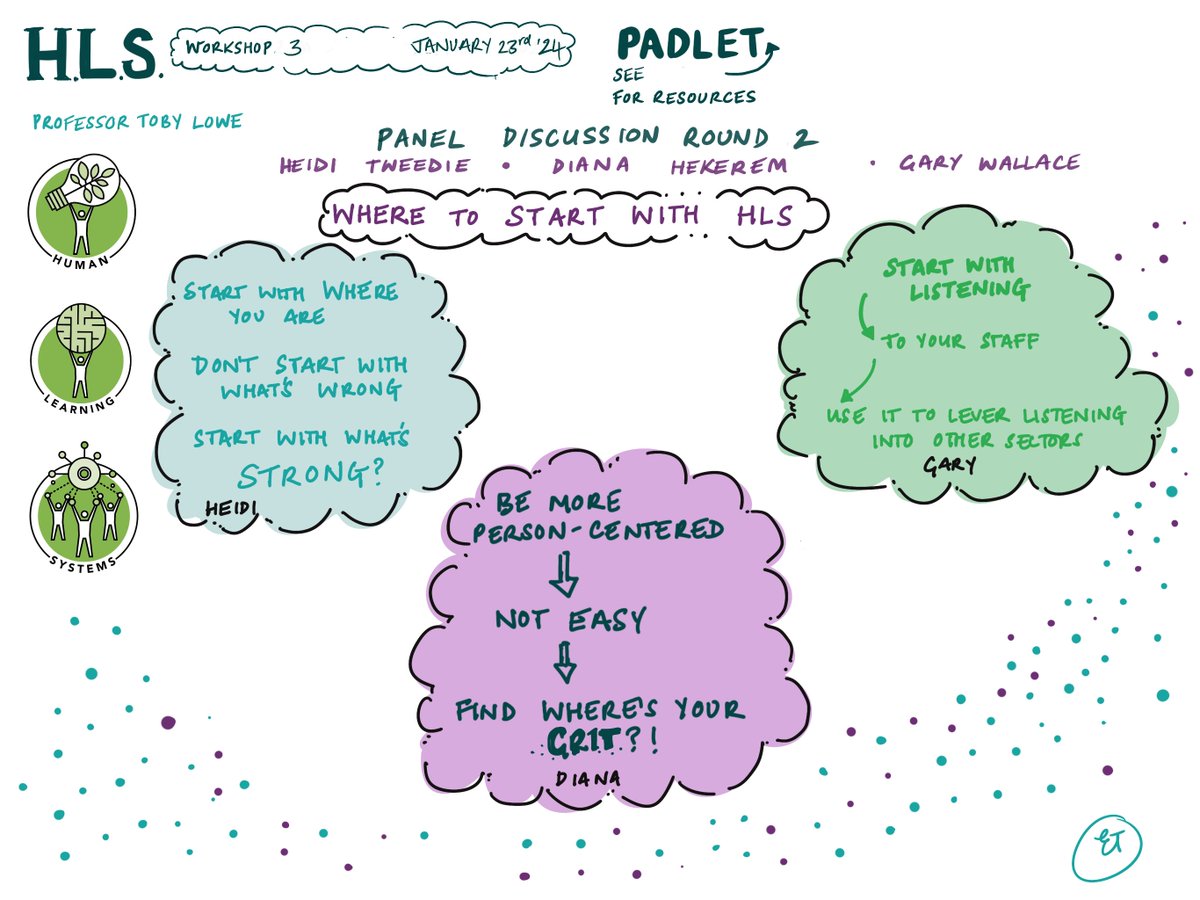 H.L.S.
WORKSHOP 3 JANUARY 23rd '24
PADLET
SEE
FOR RESOURCES
PROFESSOR TOBY LOWE
PANEL DISCUSSION ROUND 2
HEIDI TWEEDIE • DIANA HEKEREM • GARY WALLACE
WHERE TO START WITH HLS
HUMAN
LEARNING
SYSTEMS
START WITH WHERE
YOU ARE
DON'T START WITH
WHAT'S WRONG
START WITH WHAT'S
STRONG?
HEIDI
BE MORE
PERSON-CENTERED
NOT EASY
FIND WHERE'S YOUR
GRIT?!
DIANA
START WITH
LISTENING
TO YOUR STAFF
USE IT TO LEVER LISTENING
INTO OTHER SECTORS
GARY
ET